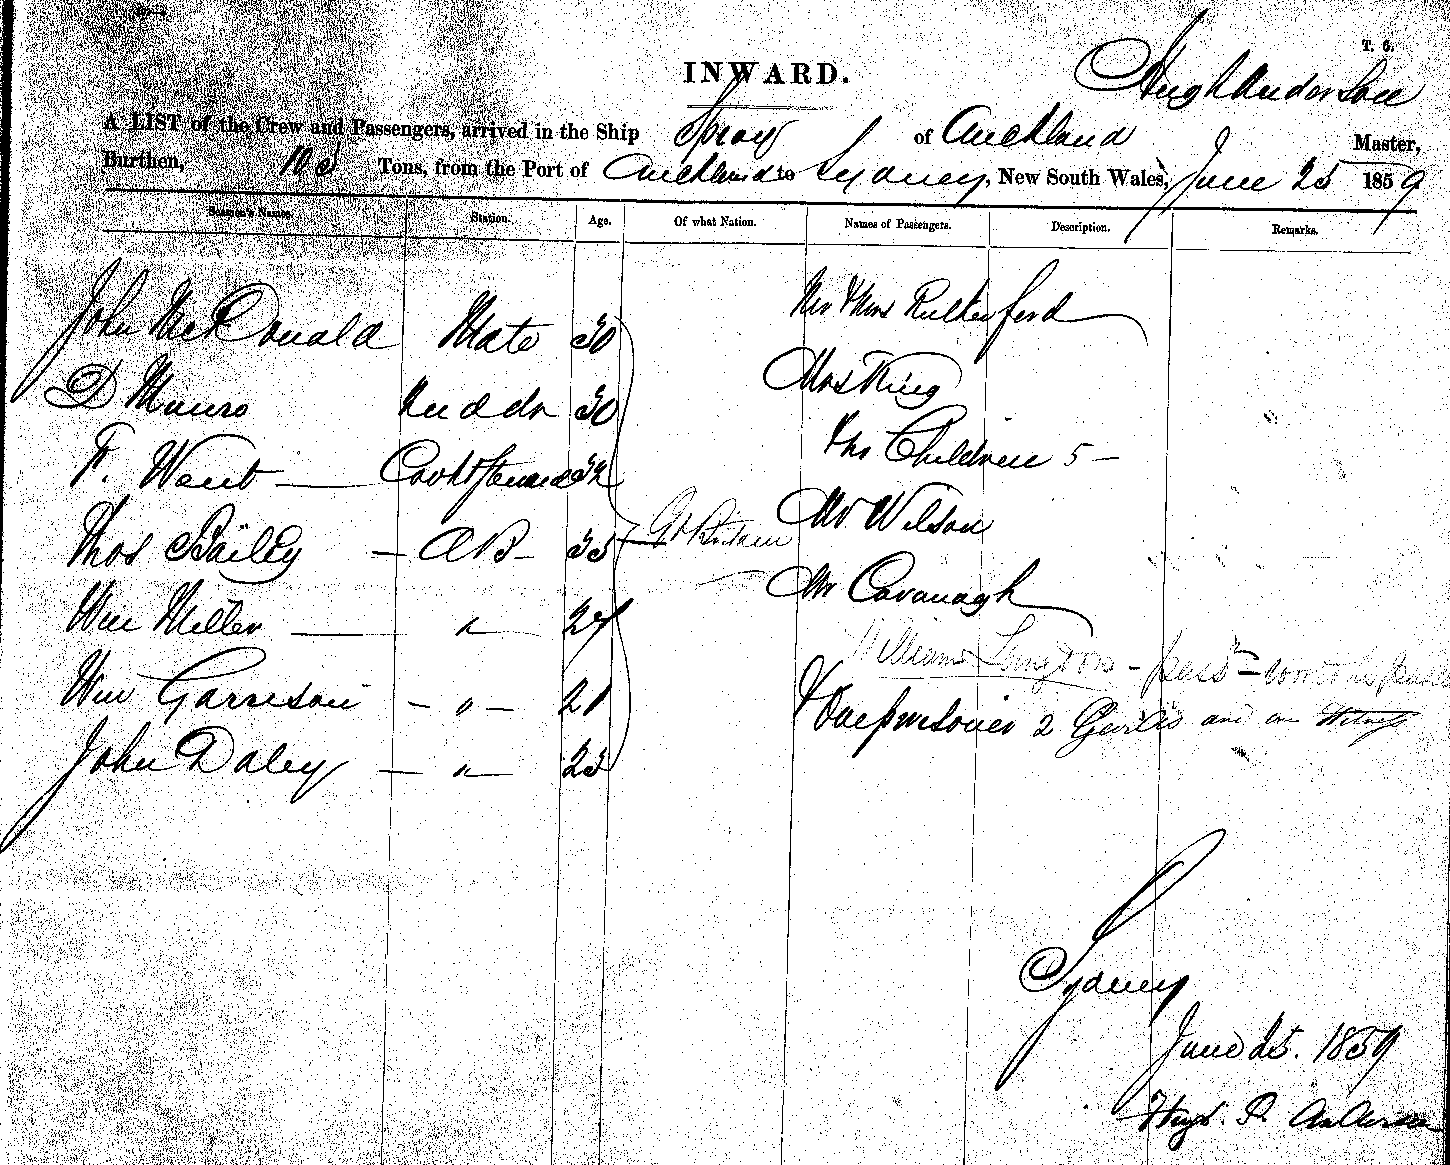 T. 6.
INWARD.
Hugh Anderson
A LIST of the Crew and Passengers, arrived in the Ship Spray of Auckland Master,
Burthen, Tons, from the Port of Auckland to Sydney, New South Wales, June 25 1859
Seamen's Names. Station. Age. Of what Nation. Names of Passengers. Description. Remarks.
John McDonald Mate 30 Mr & Mrs Rutherford
D Munro 30 Mrs King
F. Went Cook & Steward 32 Children 5 —
Thos Bailey — AB — 35 Gt Britain Mr Wilson
Wm Miller — " 27 Mr Cavanagh
William Langdon - pass -
Wm Garrison — " — 21 & One prisoner 2 and a Witness
John Daley — " — 23
Sydney
June 25. 1859
Hugh. Anderson